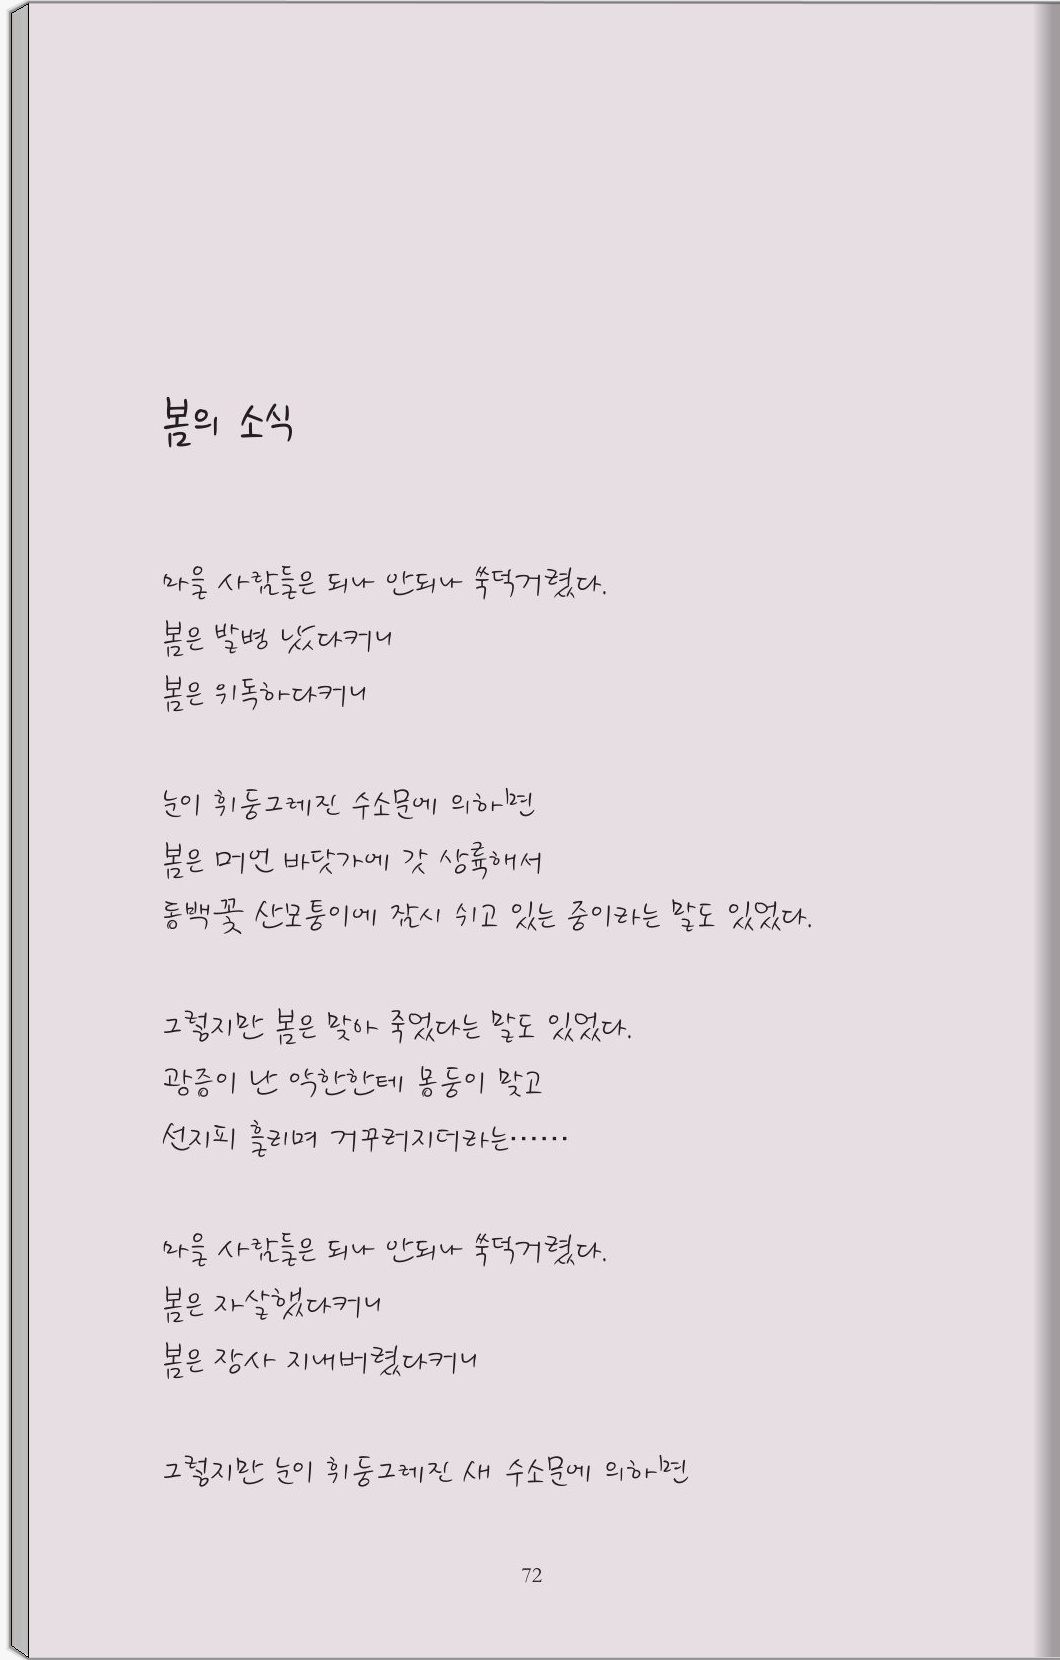 봄의 소식
마을 사람들은 되나 안되나 쑥덕거렸다.
봄은 발병 났다커니
봄은 위독하다커니
눈이 휘둥그레진 수소문에 의하면
봄은 머언 바닷가에 갓 상륙해서
동백꽃 산모퉁이에 잠시 쉬고 있는 중이라는 말도 있었다.
그렇지만 봄은 맞아 죽었다는 말도 있었다.
광증이 난 악한한테 몽둥이 맞고
선지피 흘리며 거꾸러지더라는……
마을 사람들은 되나 안되나 쑥덕거렸다.
봄은 자살했다커니
봄은 장사 지내버렸다커니
그렇지만 눈이 휘둥그레진 새 수소문에 의하면
72